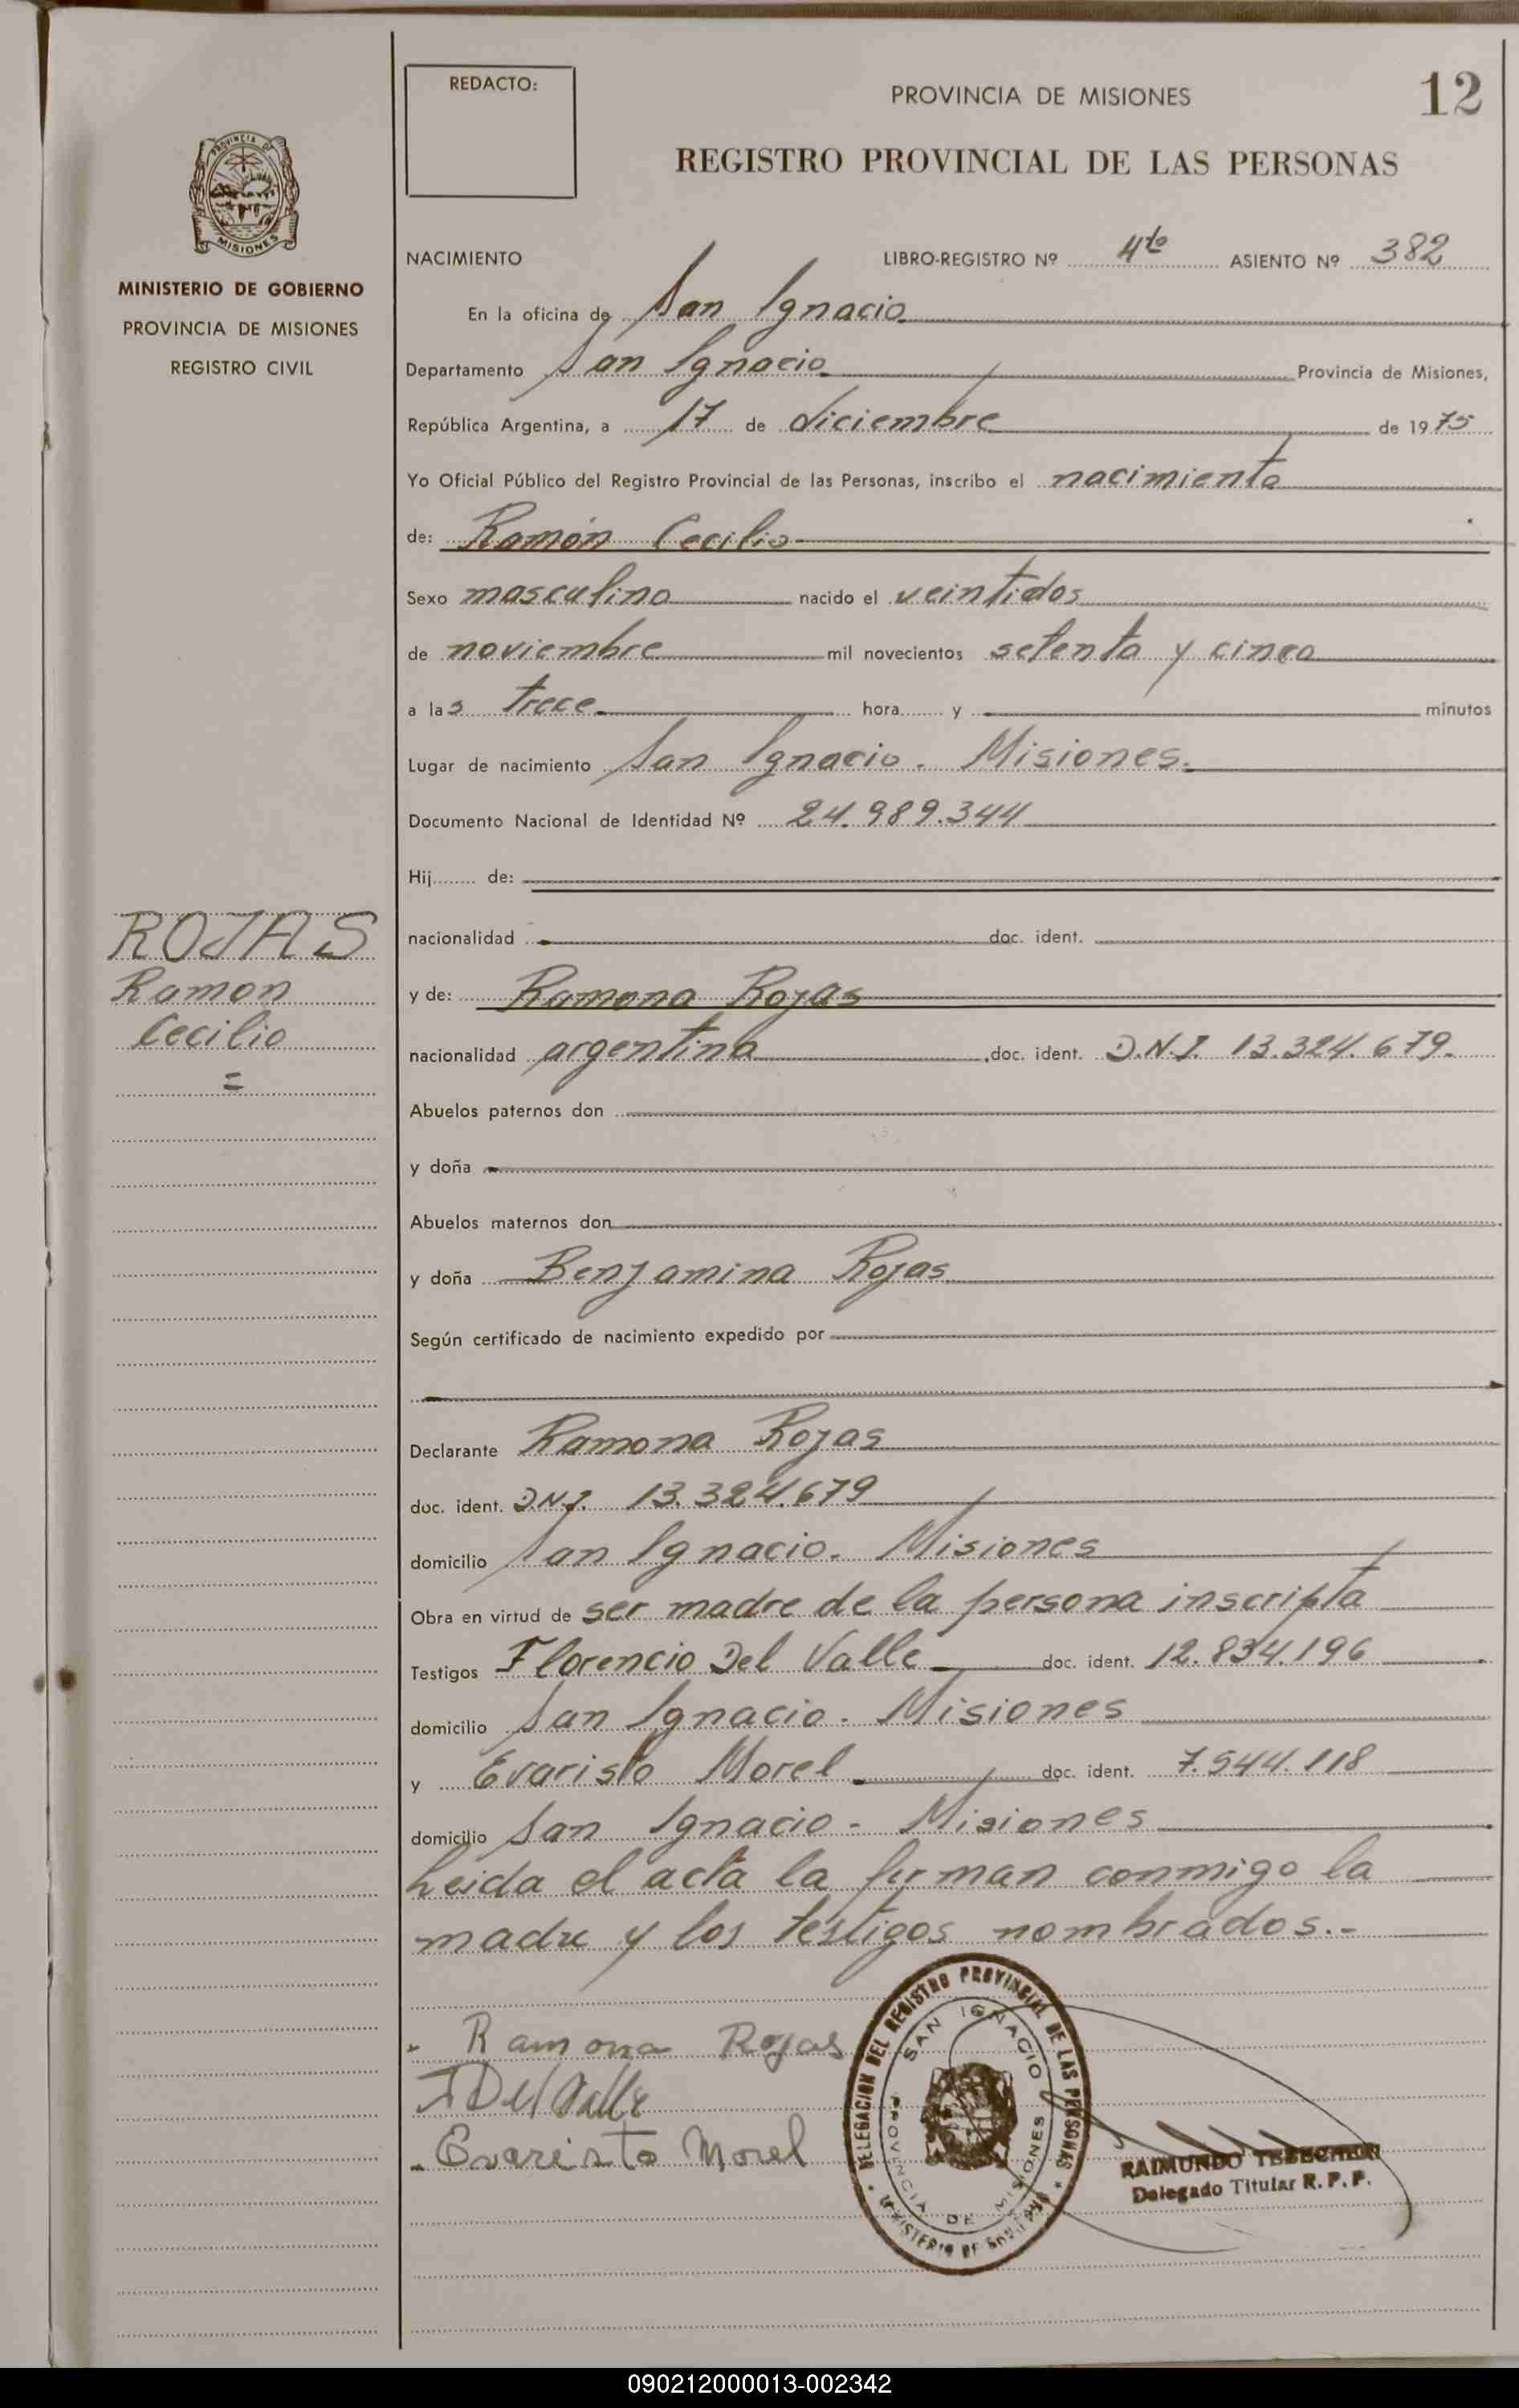 REDACTO:
PROVINCIA DE MISIONES
12
REGISTRO PROVINCIAL DE LAS PERSONAS
PROVINCIA DE
MISIONES
MINISTERIO DE GOBIERNO
PROVINCIA DE MISIONES
REGISTRO CIVIL
NACIMIENTO LIBRO-REGISTRO Nº 4to ASIENTO Nº 382
En la oficina de San Ignacio
Departamento San Ignacio Provincia de Misiones,
República Argentina, a 17 de diciembre de 1975
Yo Oficial Público del Registro Provincial de las Personas, inscribo el nacimiento
de: Ramón Cecilio
Sexo masculino nacido el veintidos
de noviembre mil novecientos setenta y cinco
a las trece hora y minutos
Lugar de nacimiento San Ignacio. Misiones.
Documento Nacional de Identidad Nº 24.989.344
Hij de:
nacionalidad doc. ident.
ROJAS
Ramon
Cecilio
=
y de: Ramona Rojas
nacionalidad argentina doc. ident. D.N.I. 13.324.679.
Abuelos paternos don
y doña
Abuelos maternos don
y doña Benjamina Rojas
Según certificado de nacimiento expedido por
Declarante Ramona Rojas
doc. ident. D.N.I. 13.324.679
domicilio San Ignacio. Misiones
Obra en virtud de ser madre de la persona inscripta
Testigos Florencio Del Valle doc. ident. 12.834.196
domicilio San Ignacio. Misiones
y Evaristo Morel doc. ident. 7.544.118
domicilio San Ignacio - Misiones
Leida el acta la firman conmigo la
madre y los testigos nombrados.-
Ramona Rojas
F Del Valle
Evaristo Morel
DELEGACION DEL REGISTRO PROVINCIAL DE LAS PERSONAS
SAN IGNACIO
PROVINCIA DE MISIONES
MINISTERIO DE GOBIERNO
RAIMUNDO
Delegado Titular R. P. P.
090212000013-002342